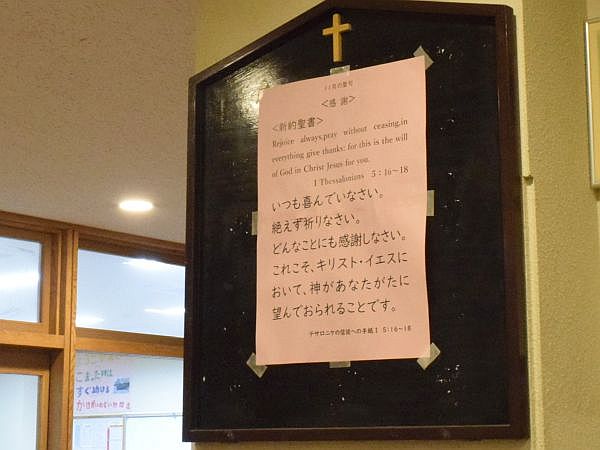 11月の聖句
<感謝>
<新約聖書>
Rejoice always,pray without ceasing,in
everything give thanks: for this is the will
of God in Christ Jesus for you.
I Thessalonians 5:16~18
いつも喜んでいなさい。
絶えず祈りなさい。
どんなことにも感謝しなさい。
これこそ、キリスト・イエスに
おいて、神があなたがたに
望んでおられることです。
テサロニケの信徒への手紙I 5:16~18
こまった時は
すぐ助ける